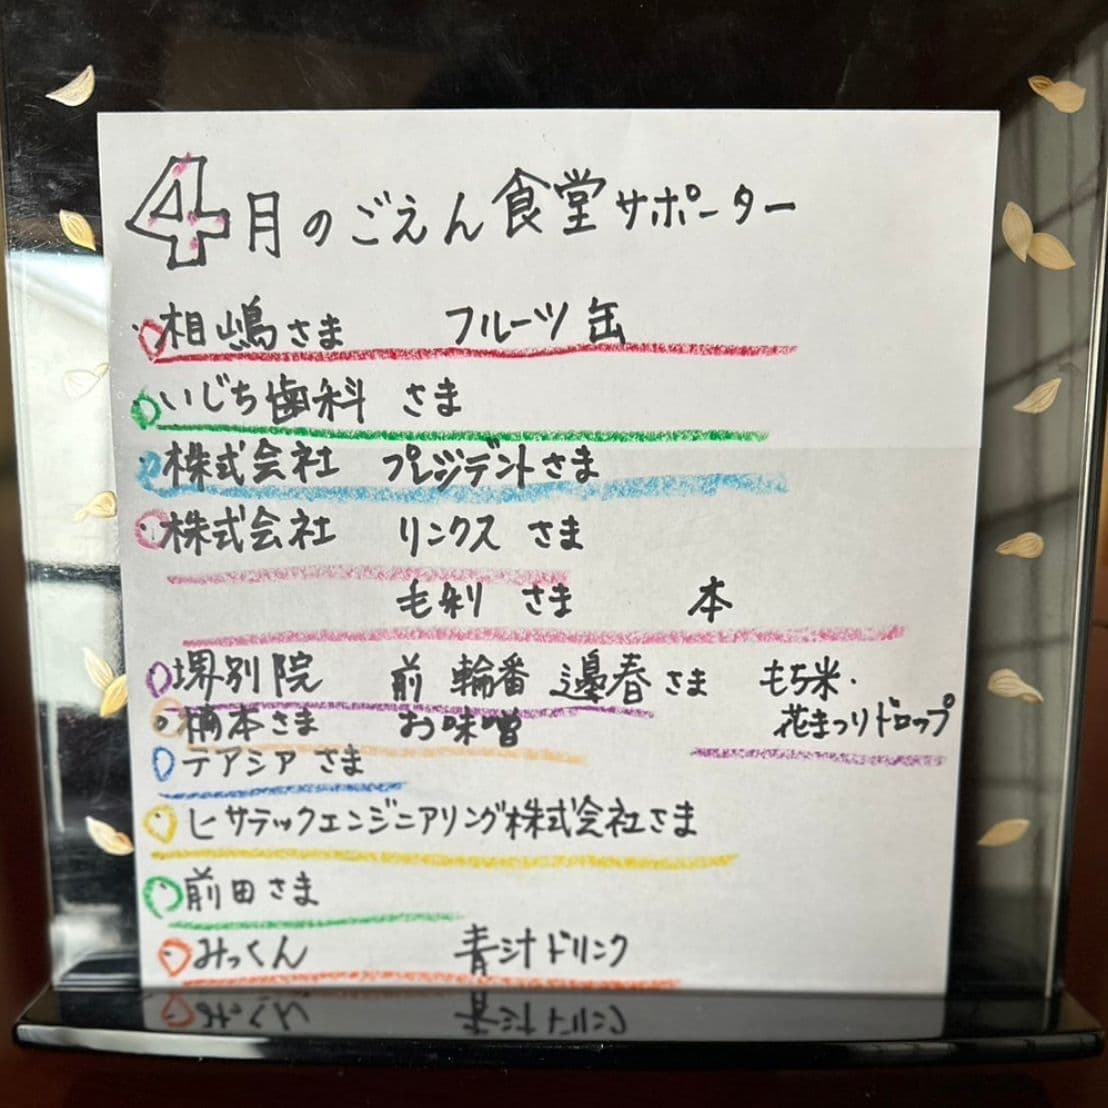 4月のごえん食堂サポーター
相嶋さま フルーツ缶
いじち歯科 さま
株式会社 プレジデントさま
株式会社 リンクス さま
毛利 さま 本
堺別院 前 輪番 邊春さま もち米・
花まつりドロップ
橋本さま お味噌
テアシア さま
ヒサテックエンジニアリング株式会社さま
前田さま
みっくん 青汁ドリンク